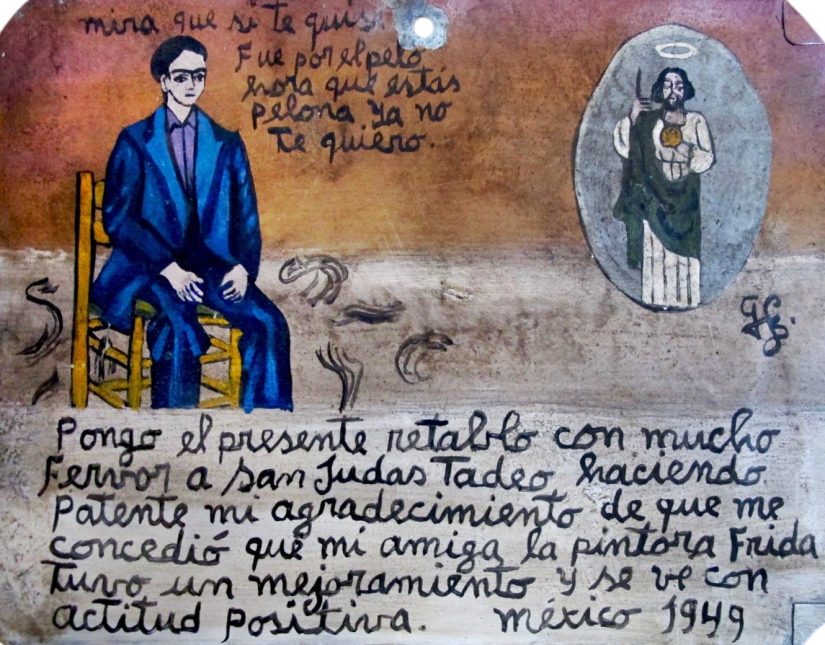 mira que si te quis
Fue por el pelo
hora que estás
pelona ya no
te quiero.
Pongo el presente retablo con mucho
Fervor a San Judas Tadeo haciendo
Patente mi agradecimiento de que me
concedió que mi amiga la pintora Frida
tuvo un mejoramiento y se ve con
actitud positiva. méxico 1949